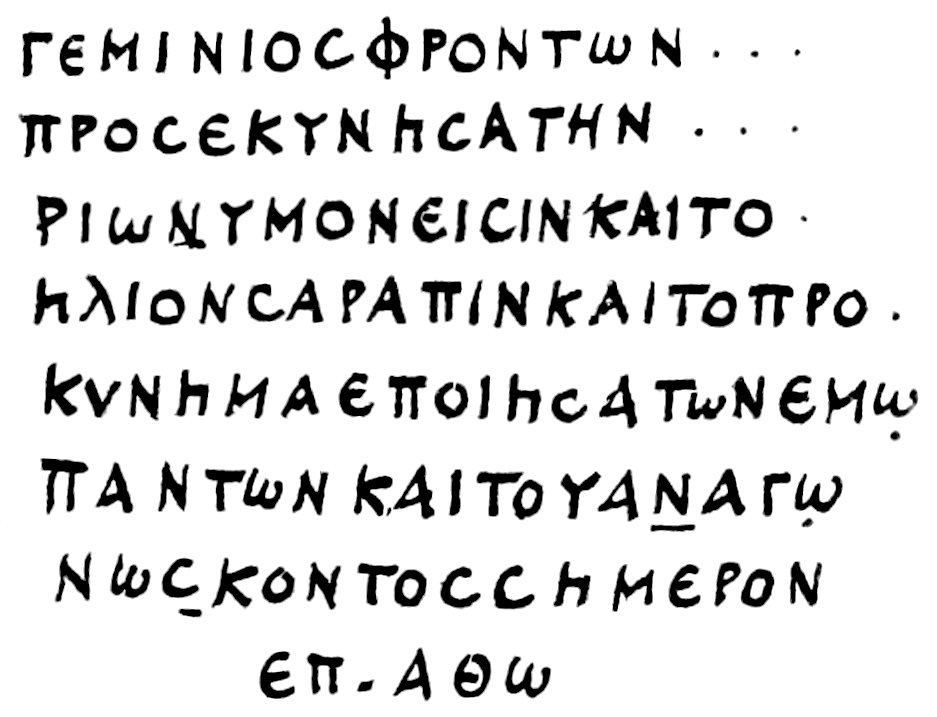 ΓΕΜΙΝΙΟCΦΡΟΝΤωΝ . . .
ΠΡΟCΕΚΥΝΗCΑΤΗΝ . . .
ΡΙωΝΥΜΟΝΕΙCΙΝΚΑΙΤΟ .
ΗΛΙΟΝCΑΡΑΠΙΝΚΑΙΤΟΠΡΟ .
ΚΥΝΗΜΑΕΠΟΙΗCΑΤωΝΕΜω
ΠΑΝΤωΝΚΑΙΤΟΥΑΝΑΓω
ΝωCΚΟΝΤΟCCΗΜΕΡΟΝ
ΕΠ-ΑΘω